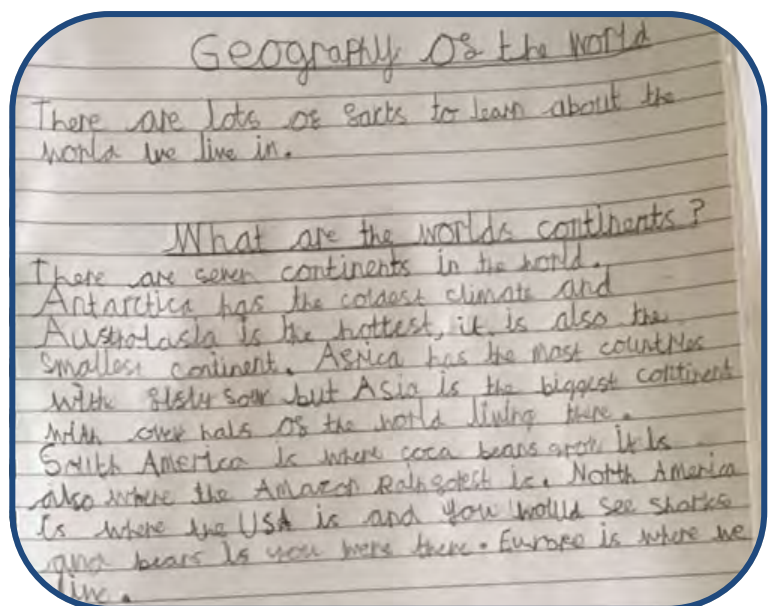 Geography of the world
There are lots of facts to learn about the
world we live in.
What are the worlds continents?
There are seven continents in the world.
Antarctica has the coldest climate and
Australasia is the hottest, it is also the
smallest continent. Africa has the most countries
with fifty four but Asia is the biggest continent
with over half of the world living there.
South America is where coca beans grow it is
also where the Amazon Rainforest is. North America
is where the USA is and you would see sharks
and bears if you were there. Europe is where we
live.